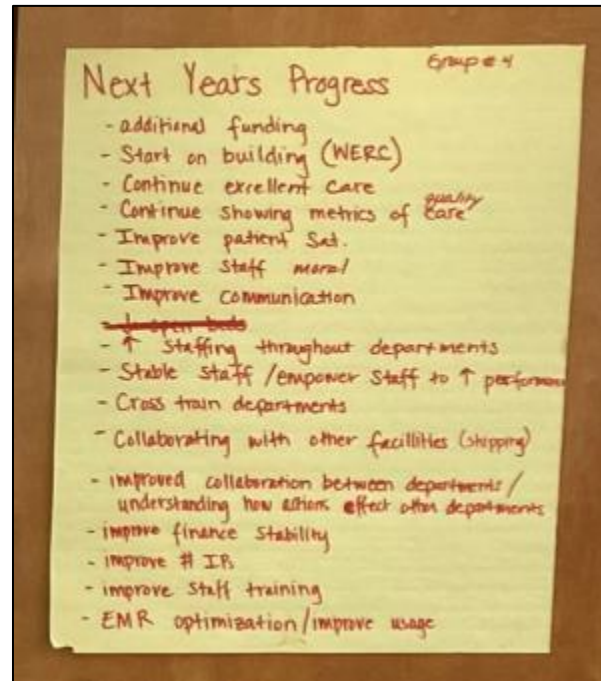 Group # 4
Next Years Progress
- additional funding
- Start on building (WERC)
- Continue excellent care
quality
- Continue showing metrics of care
- Improve patient Sat.
- Improve Staff moral
- Improve communication
- ↑ Staffing throughout departments
- Stable Staff / empower Staff to ↑ performance
- Cross train departments
- Collaborating with other facillities (shipping)
- improved collaboration between departments /
understanding how actions effect other departments
- improve finance Stability
- improve # IR
- improve Staff training
- EMR optimization/improve usage